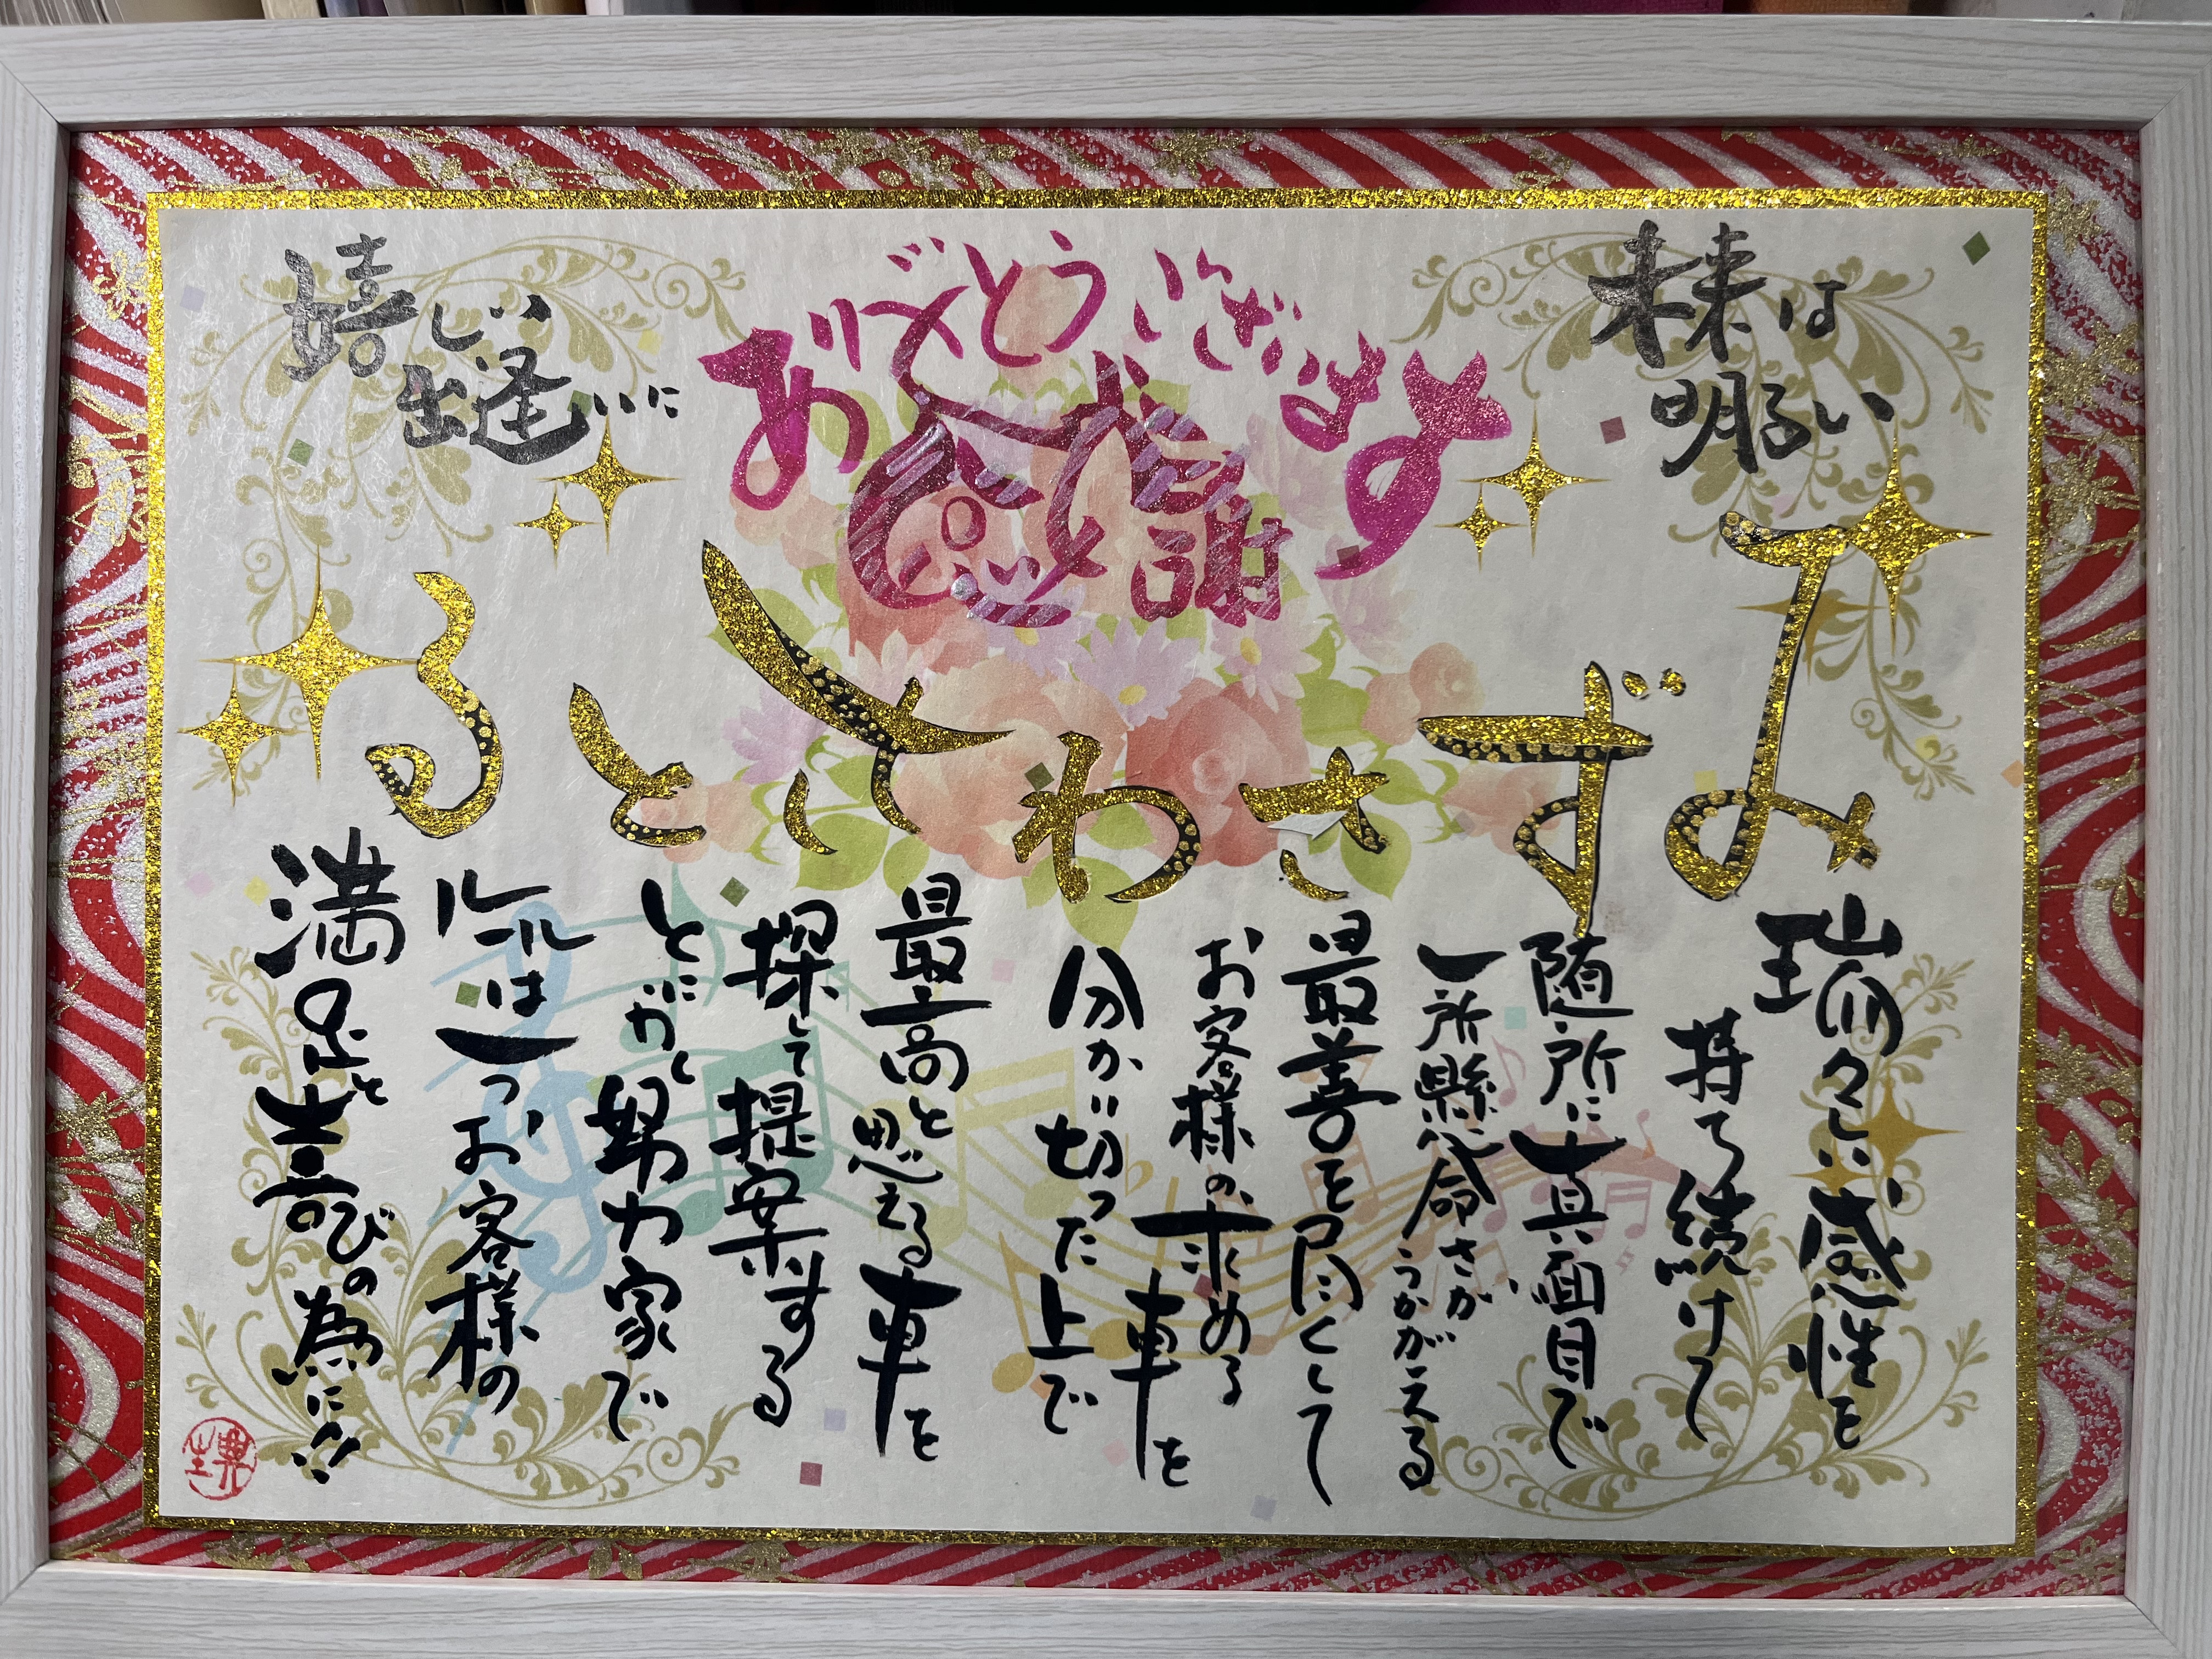 未来は
明るい
ありがとうございます
感謝
嬉しい
出逢いに
みずさわさとる
瑞々しい感性を
持ち続けて
随所に真面目で
一所懸命さが
うかがえる
最善を尽くして
お客様の求める
車を
分かり切った上で
最高と思える車を
探して提案する
とにかく努力家で
ルールは一つお客様の
満足と喜びの為に!!